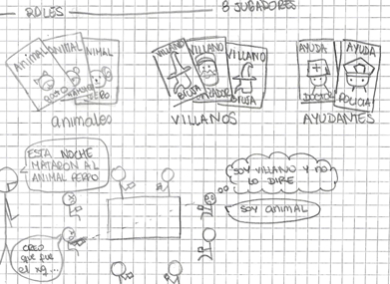 ROLES
8 JUGADORES
ANIMAL ANIMAL ANIMAL
OSO
PERRO
animales
VILLANO VILLANO VILLANO
BRUJA CAZADOR BRUJA
VILLANOS
AYUDA AYUDA
DOCTOR POLICIA
AYUDANTES
ESTA NOCHE
MATARON AL
ANIMAL PERRO
SOY VILLANO Y NO
LO DIRE
SOY animal
CREO
que fue
el